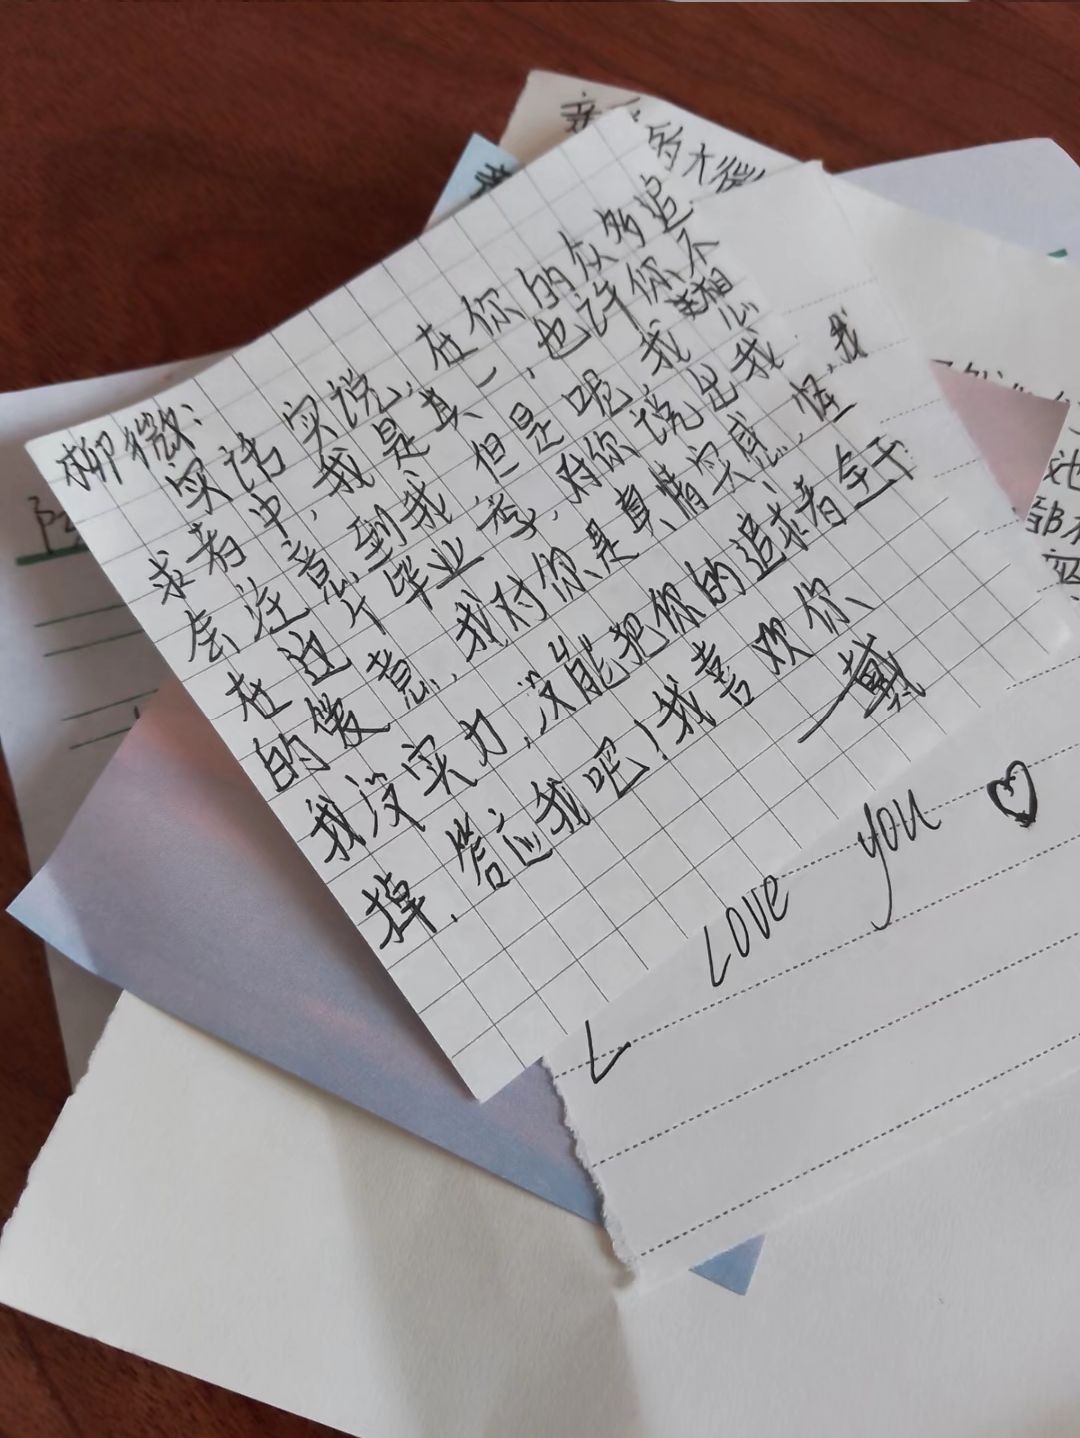 柳微:
实话实说,在你的众多追
求者中,我是其一,也许你不
会注意到我,但是呢,我想
在这个毕业季,对你说出我心
的爱意,我对你是真情实意,怪我
我没实力,没能把你的追求者全干
掉,答应我吧!我喜欢你
—戴
L Love you ♡